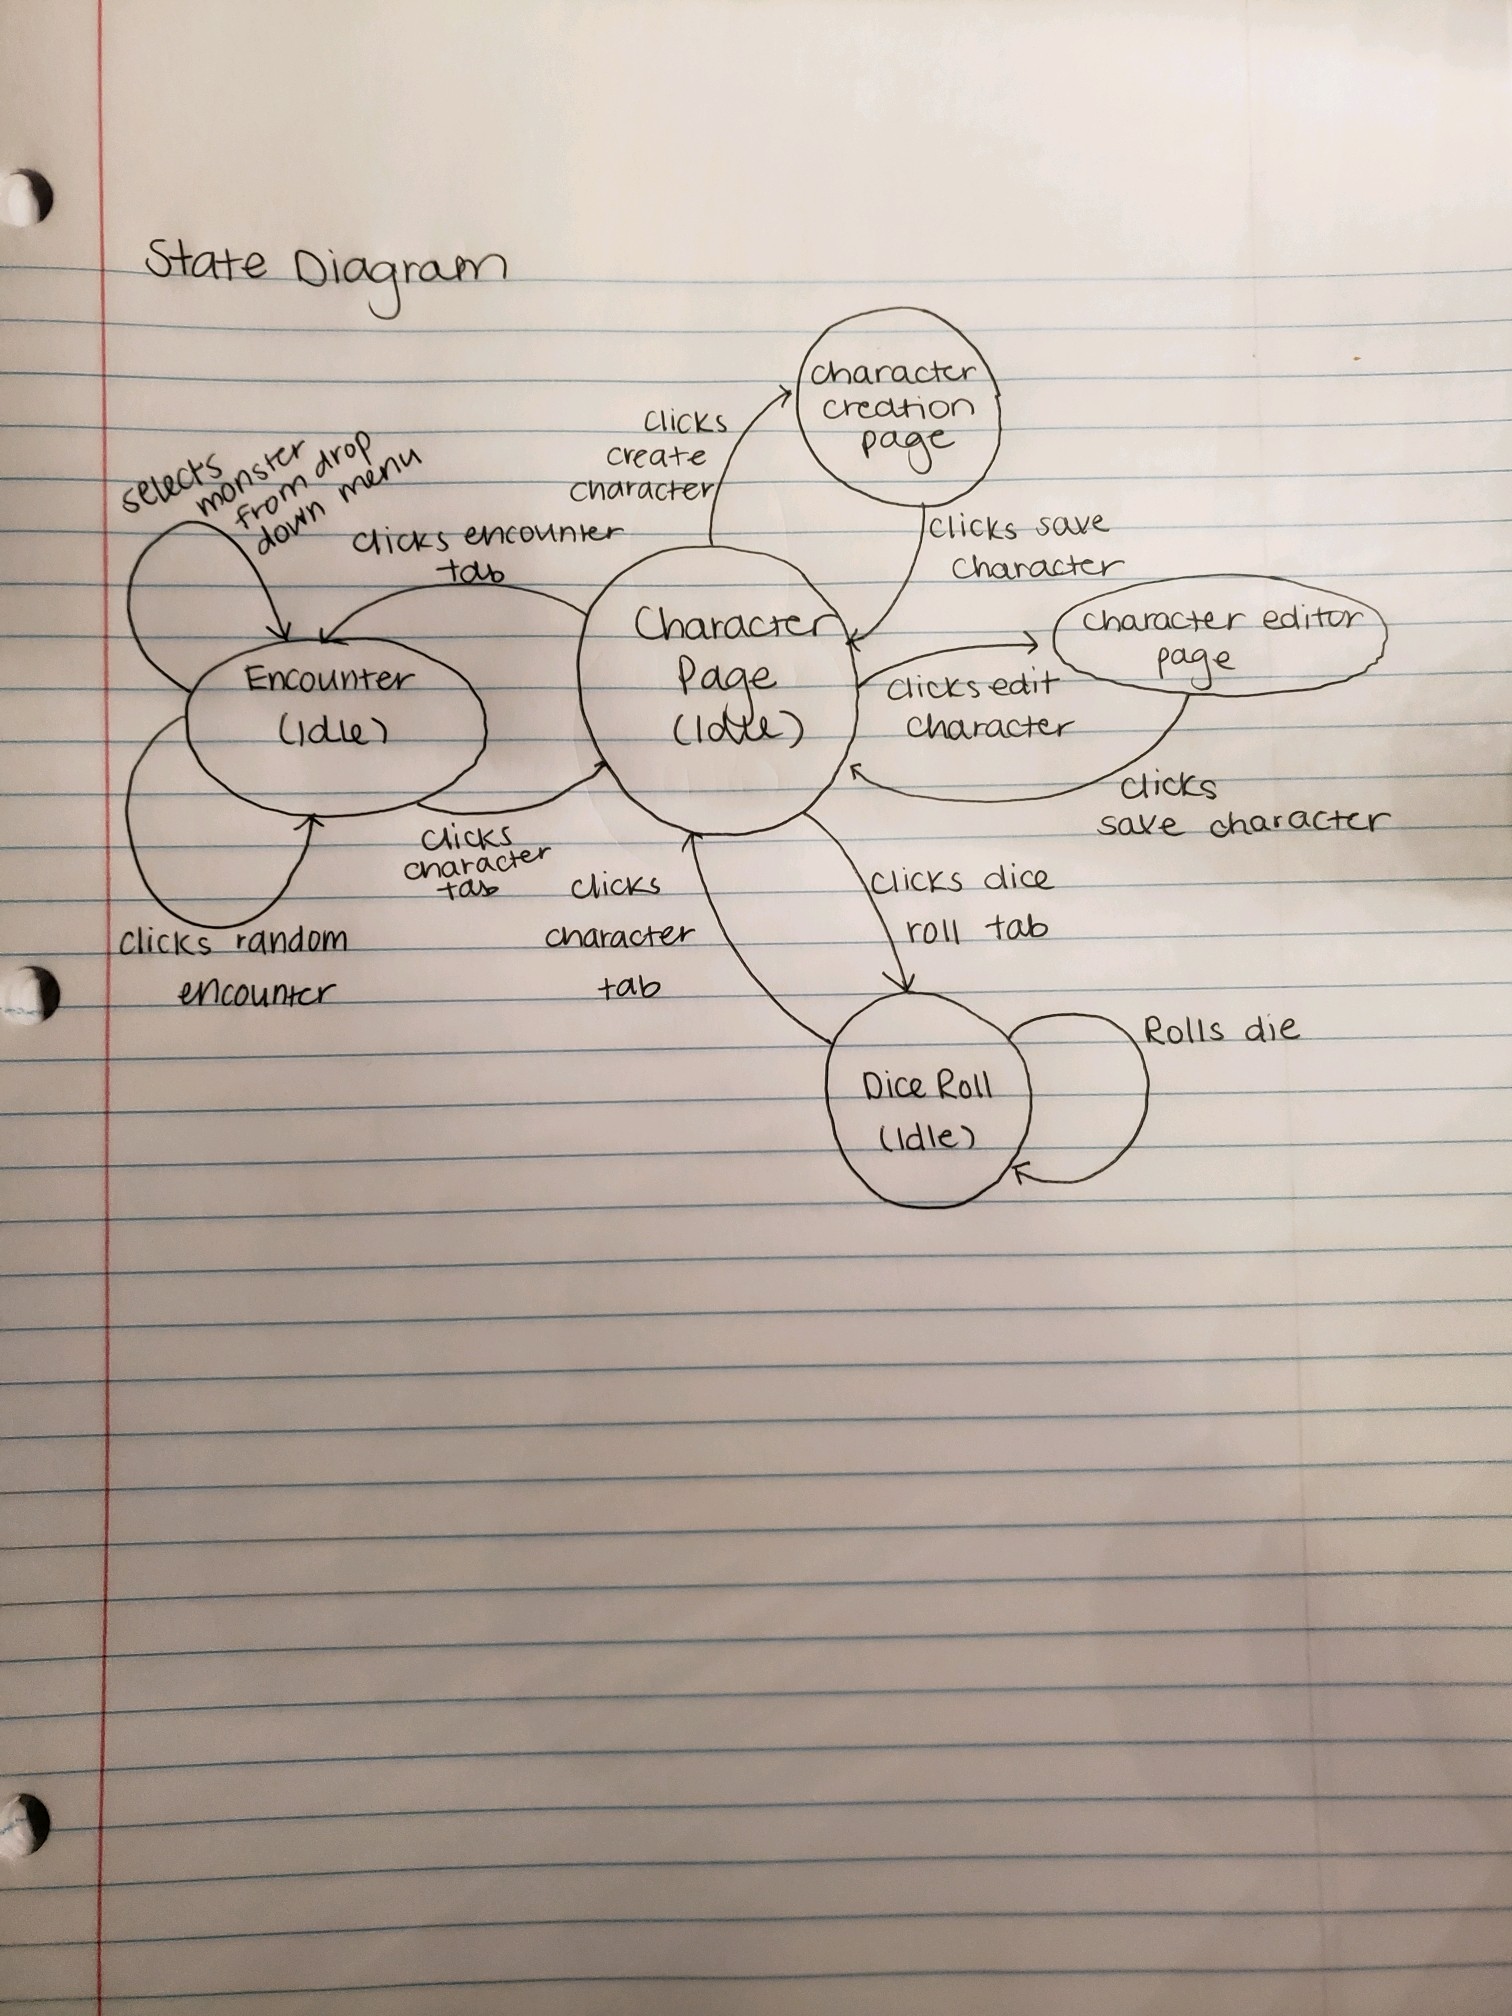 State Diagram
character
creation
page
clicks
create
character
selects
monster
from drop
down menu
clicks encounter
tab
clicks save
character
Character
Page
(Idle)
character editor
page
Encounter
(Idle)
clicks edit
character
clicks
save character
clicks
character
tab
clicks
character
tab
clicks dice
roll tab
clicks random
encounter
Rolls die
Dice Roll
(Idle)